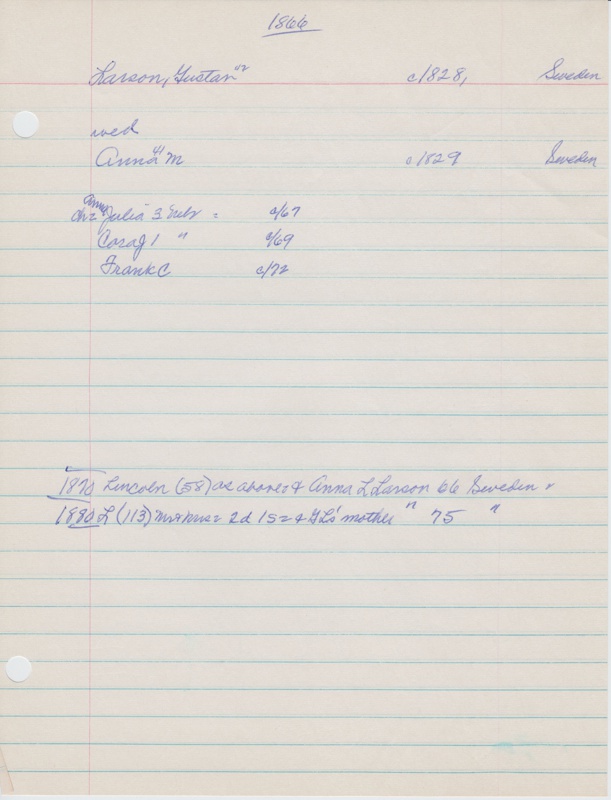 1866
Larson, Gustav 42 c1828, Sweden
wed
Anna M 41 c1829 Sweden
ch = Anna Julia 3 Nebr = c/67
Cora J 1 " c/69
Frank C c/72
1870 Lincoln (58) as above & Anna L Larson 66 Sweden
1880 L (113) Mr & Mrs = 2d 1s = & GL's mother " 75 "